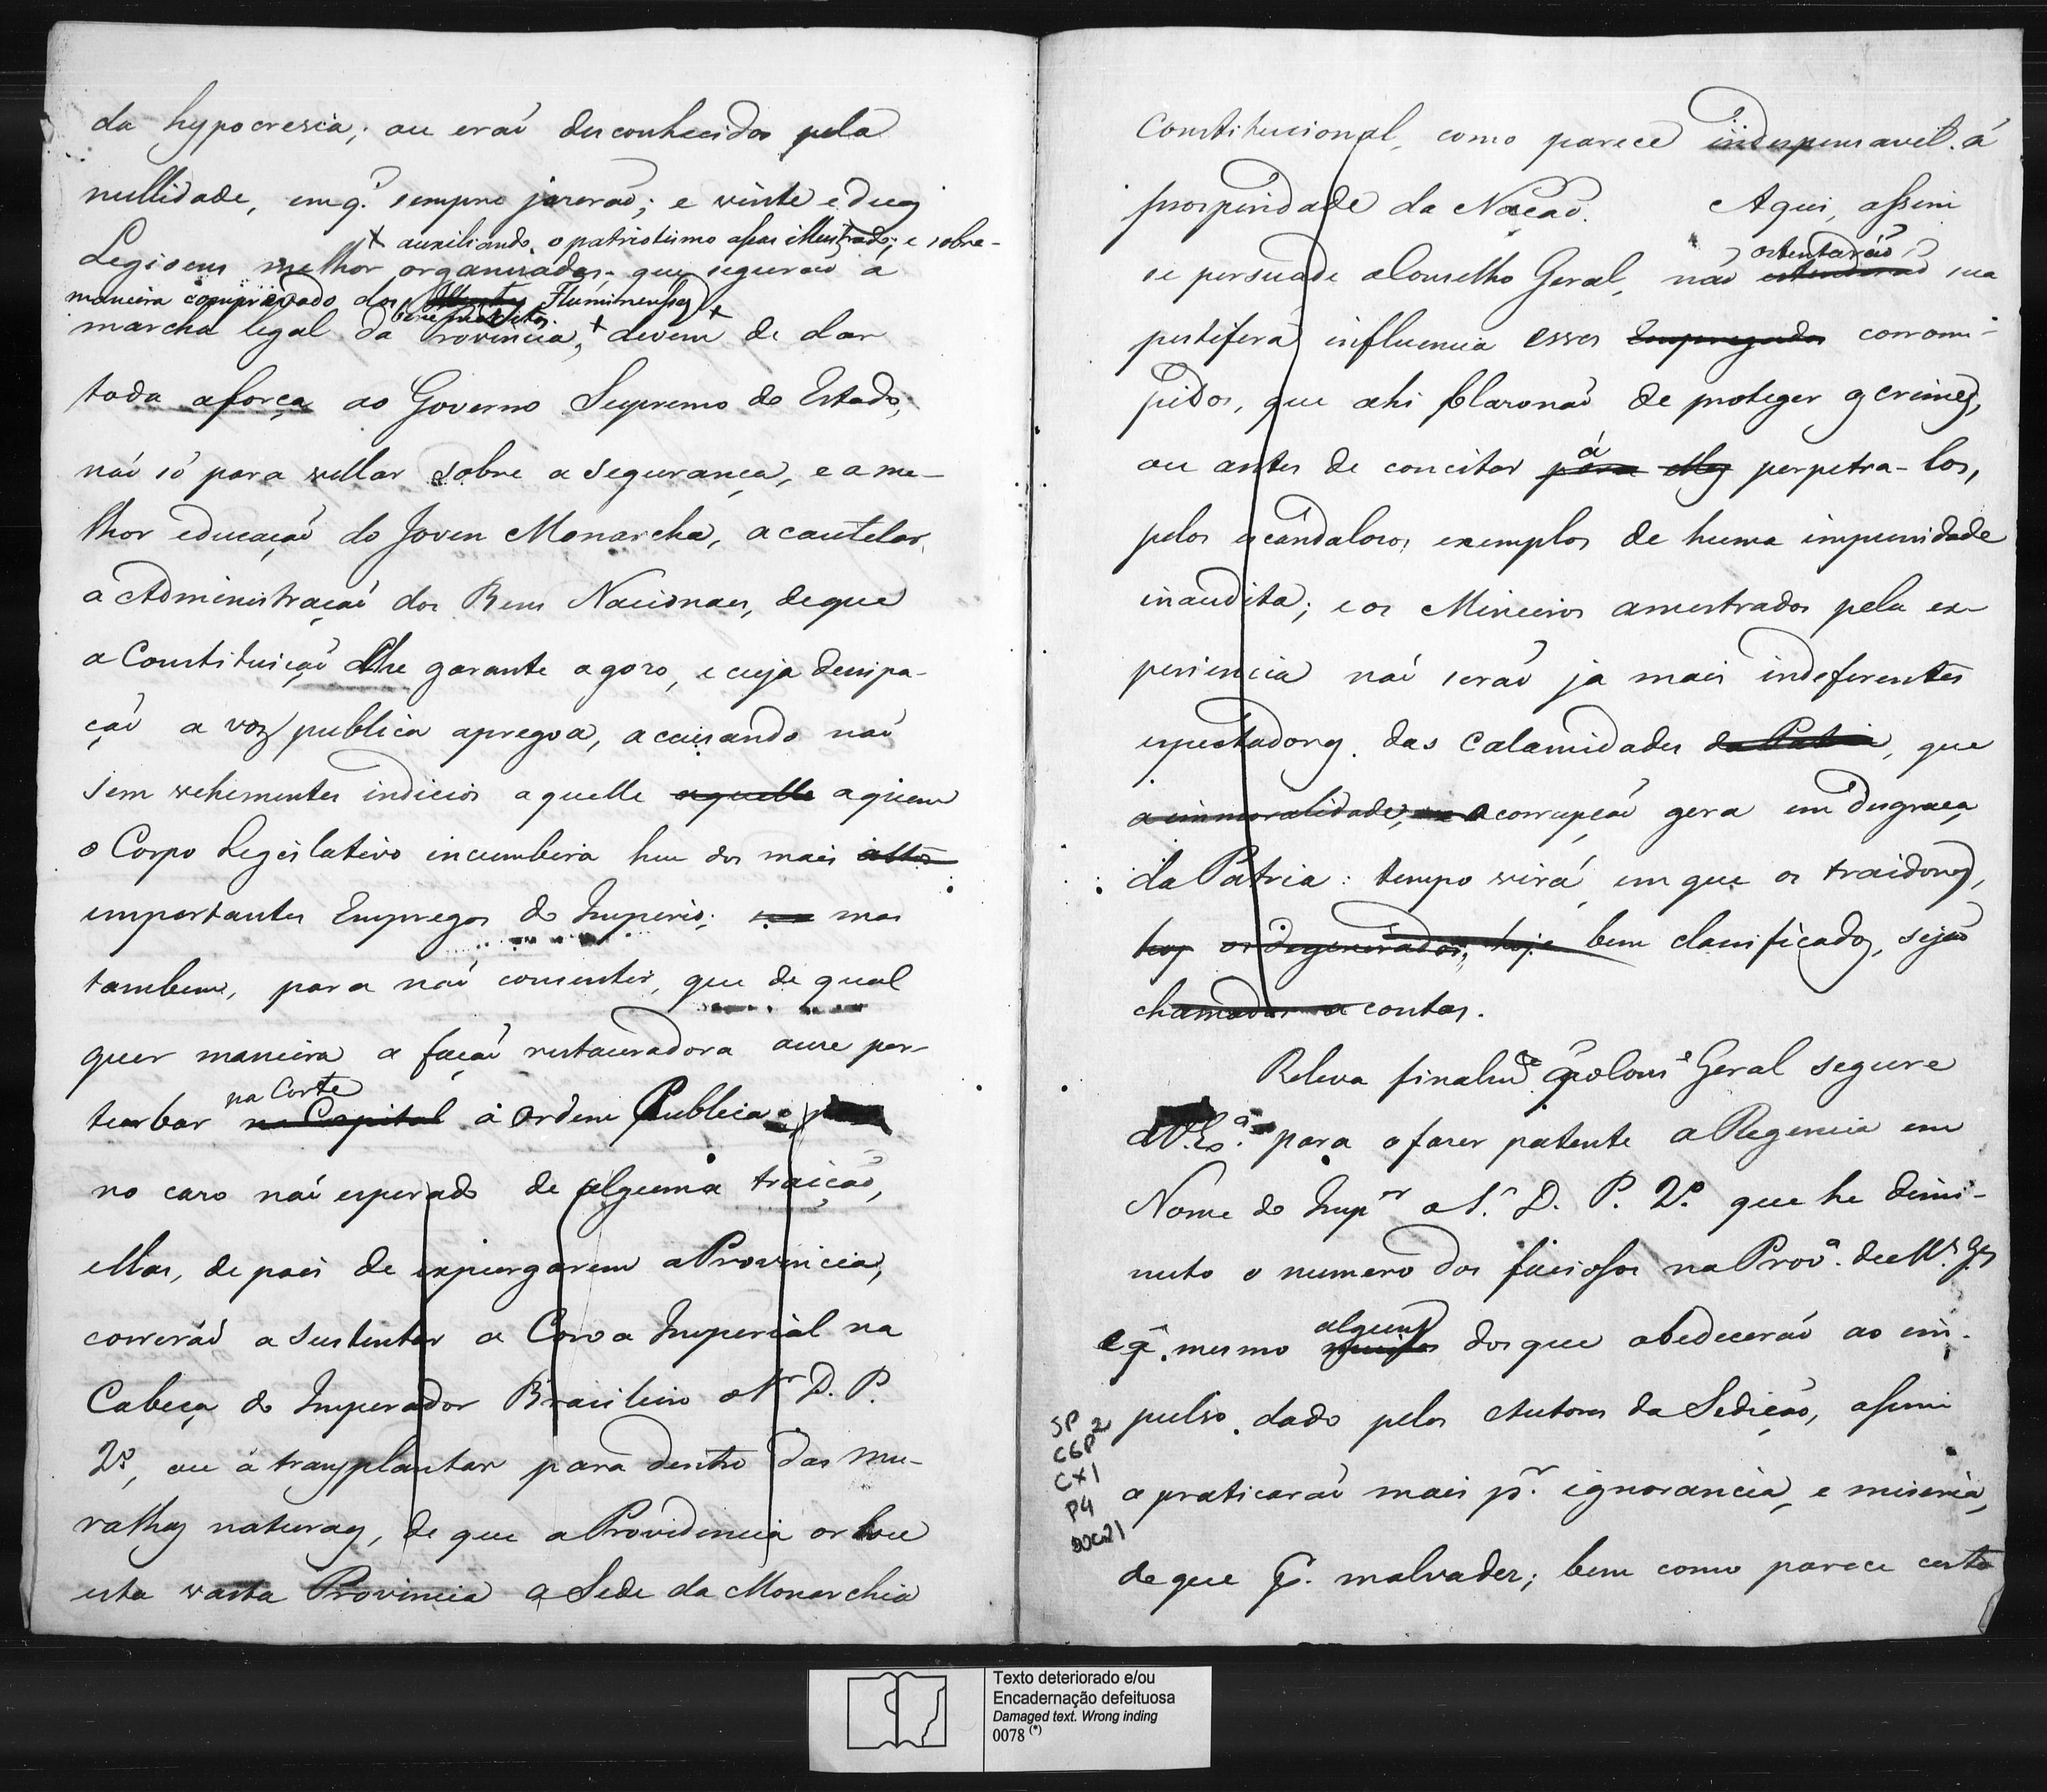 da hypocresia; ou eraõ desconhecidos pela
nullidade, em q.' sempre jazeraõ; e vinte e duas
+ auxiliando o patriotismo assas illustrado, e sobre-
Legioens melhor organizadas, que seguraõ a
maneira comprovado dos Fluminenses +
benemeritos
marcha legal da Provincia, + devem de dar
toda a força ao Governo Supremo do Estado,
naõ só para vellar sobre a segurança, e a me-
lhor educaçaõ do Joven Monarcha, acautelar
a Administraçaõ dos Bens Nacionaes, de que
a Constituiçaõ lhe garante a gozo, e cuja dessipa-
çaõ a voz publica apregoa, accusando naõ
sem vehementes indicios aquelle aquelle a quem
o Corpo Legislativo incumbira hum dos mais altos
importantes Empregos do Imperio; mas
tambem, para naõ consentir, que de qual
quer maneira a façaõ restauradora ouse per-
na Corte
turbar na Capital a Ordem Publica e
no caso naõ esperado de alguma traiçaõ,
ellas, depois de expurgarem a Provincia,
correráõ a sustentar a Coroa Imperial na
Cabeça do Imperador Brasileiro o Sr D. P.
2º, ou á transplantar para dentro das mu-
ralhas naturaes, de que a Providencia orlou
esta vasta Provincia a Sede da Monarchia
Constitucional, como parece indespensavel á
prosperidade da Naçaõ. Aqui, assim
ostentaráõ
se persuade o Conselho Geral, naõ estenderaõ sua
pestifera influencia esses Empregados corrom-
pidos, que ahi blazonaõ de proteger os crimes,
á
ou antes de concitar para elles perpetra-los,
pelos escandalosos exemplos de huma impunidade
inaudita; e os Mineiros amestrados pela ex-
periencia naõ seraõ ja mais indeferentes
espectadores das calamidades da Patria, que
a immoralidade, a corrupçaõ gera em desgraça
da Patria: tempo virá em que os traidores,
hoj os degenerados, hoje bem classificados, sejaõ
chamados a contas.
Releva finalm.e q̃ o Cons.o Geral segure
a V. Ex.ª para o fazer patente a Regencia em
Nome do Imp.or o S.r D. P. 2º que he dimi-
nuto o numero dos faciosos na Prov.ª de M.s G.s
alguns
e q̃. mesmo muitos dos que obedeceraõ ao im-
pulso dado pelos Autores da Sediçaõ, assim
o praticaraõ mais p.r ignorancia, e miseria,
de que p.r malvades; bem como parece certo
SP
CGP2
CX1
P4
DOC21
Texto deteriorado e/ou
Encadernação defeituosa
Damaged text. Wrong inding
0078 (*)